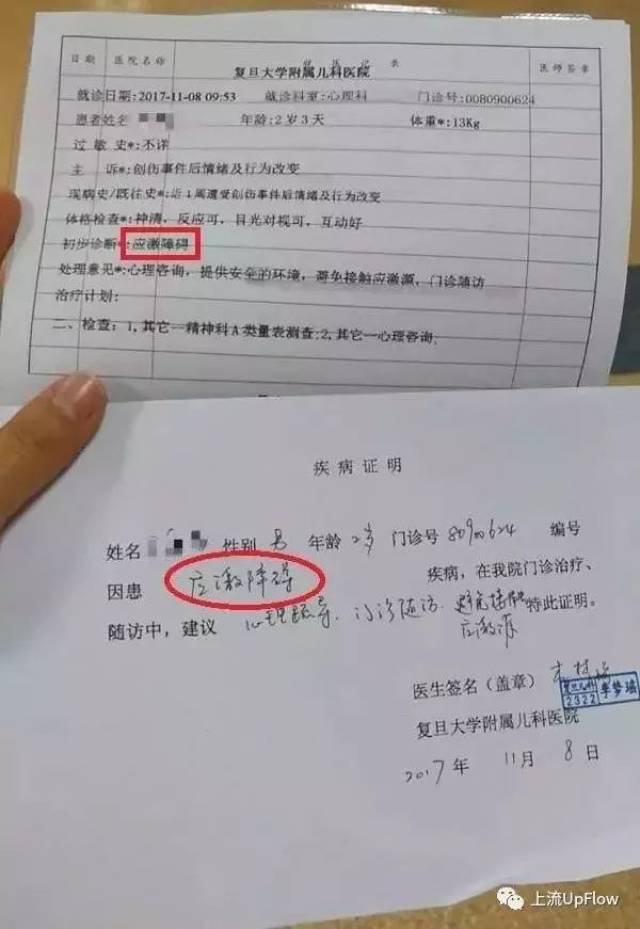 日期 医院名称 就诊记录 医师签章
复旦大学附属儿科医院
就诊日期:2017-11-08 09:53 就诊科室:心理科 门诊号:0080900624
患者姓名 年龄:2岁3天 体重*:13Kg
过敏史*:不详
主诉*:创伤事件后情绪及行为改变
现病史/既往史*:近1周遭受创伤事件后情绪及行为改变
体格检查*:神清,反应可,目光对视可,互动好
初步诊断*:应激障碍
处理意见*:心理咨询,提供安全的环境,避免接触应激源,门诊随访
治疗计划:
二、检查:1,其它—精神科A类量表测查;2,其它—心理咨询.
疾病证明
姓名 性别 男 年龄 2岁 门诊号 80900624 编号
因患 应激障碍 疾病,在我院门诊治疗、
随访中,建议 心理疏导、门诊随访、避免接触 特此证明。
应激源
医生签名(盖章)
复旦儿科
2322 李梦瑶
复旦大学附属儿科医院
2017年 11月 8日
上流UpFlow